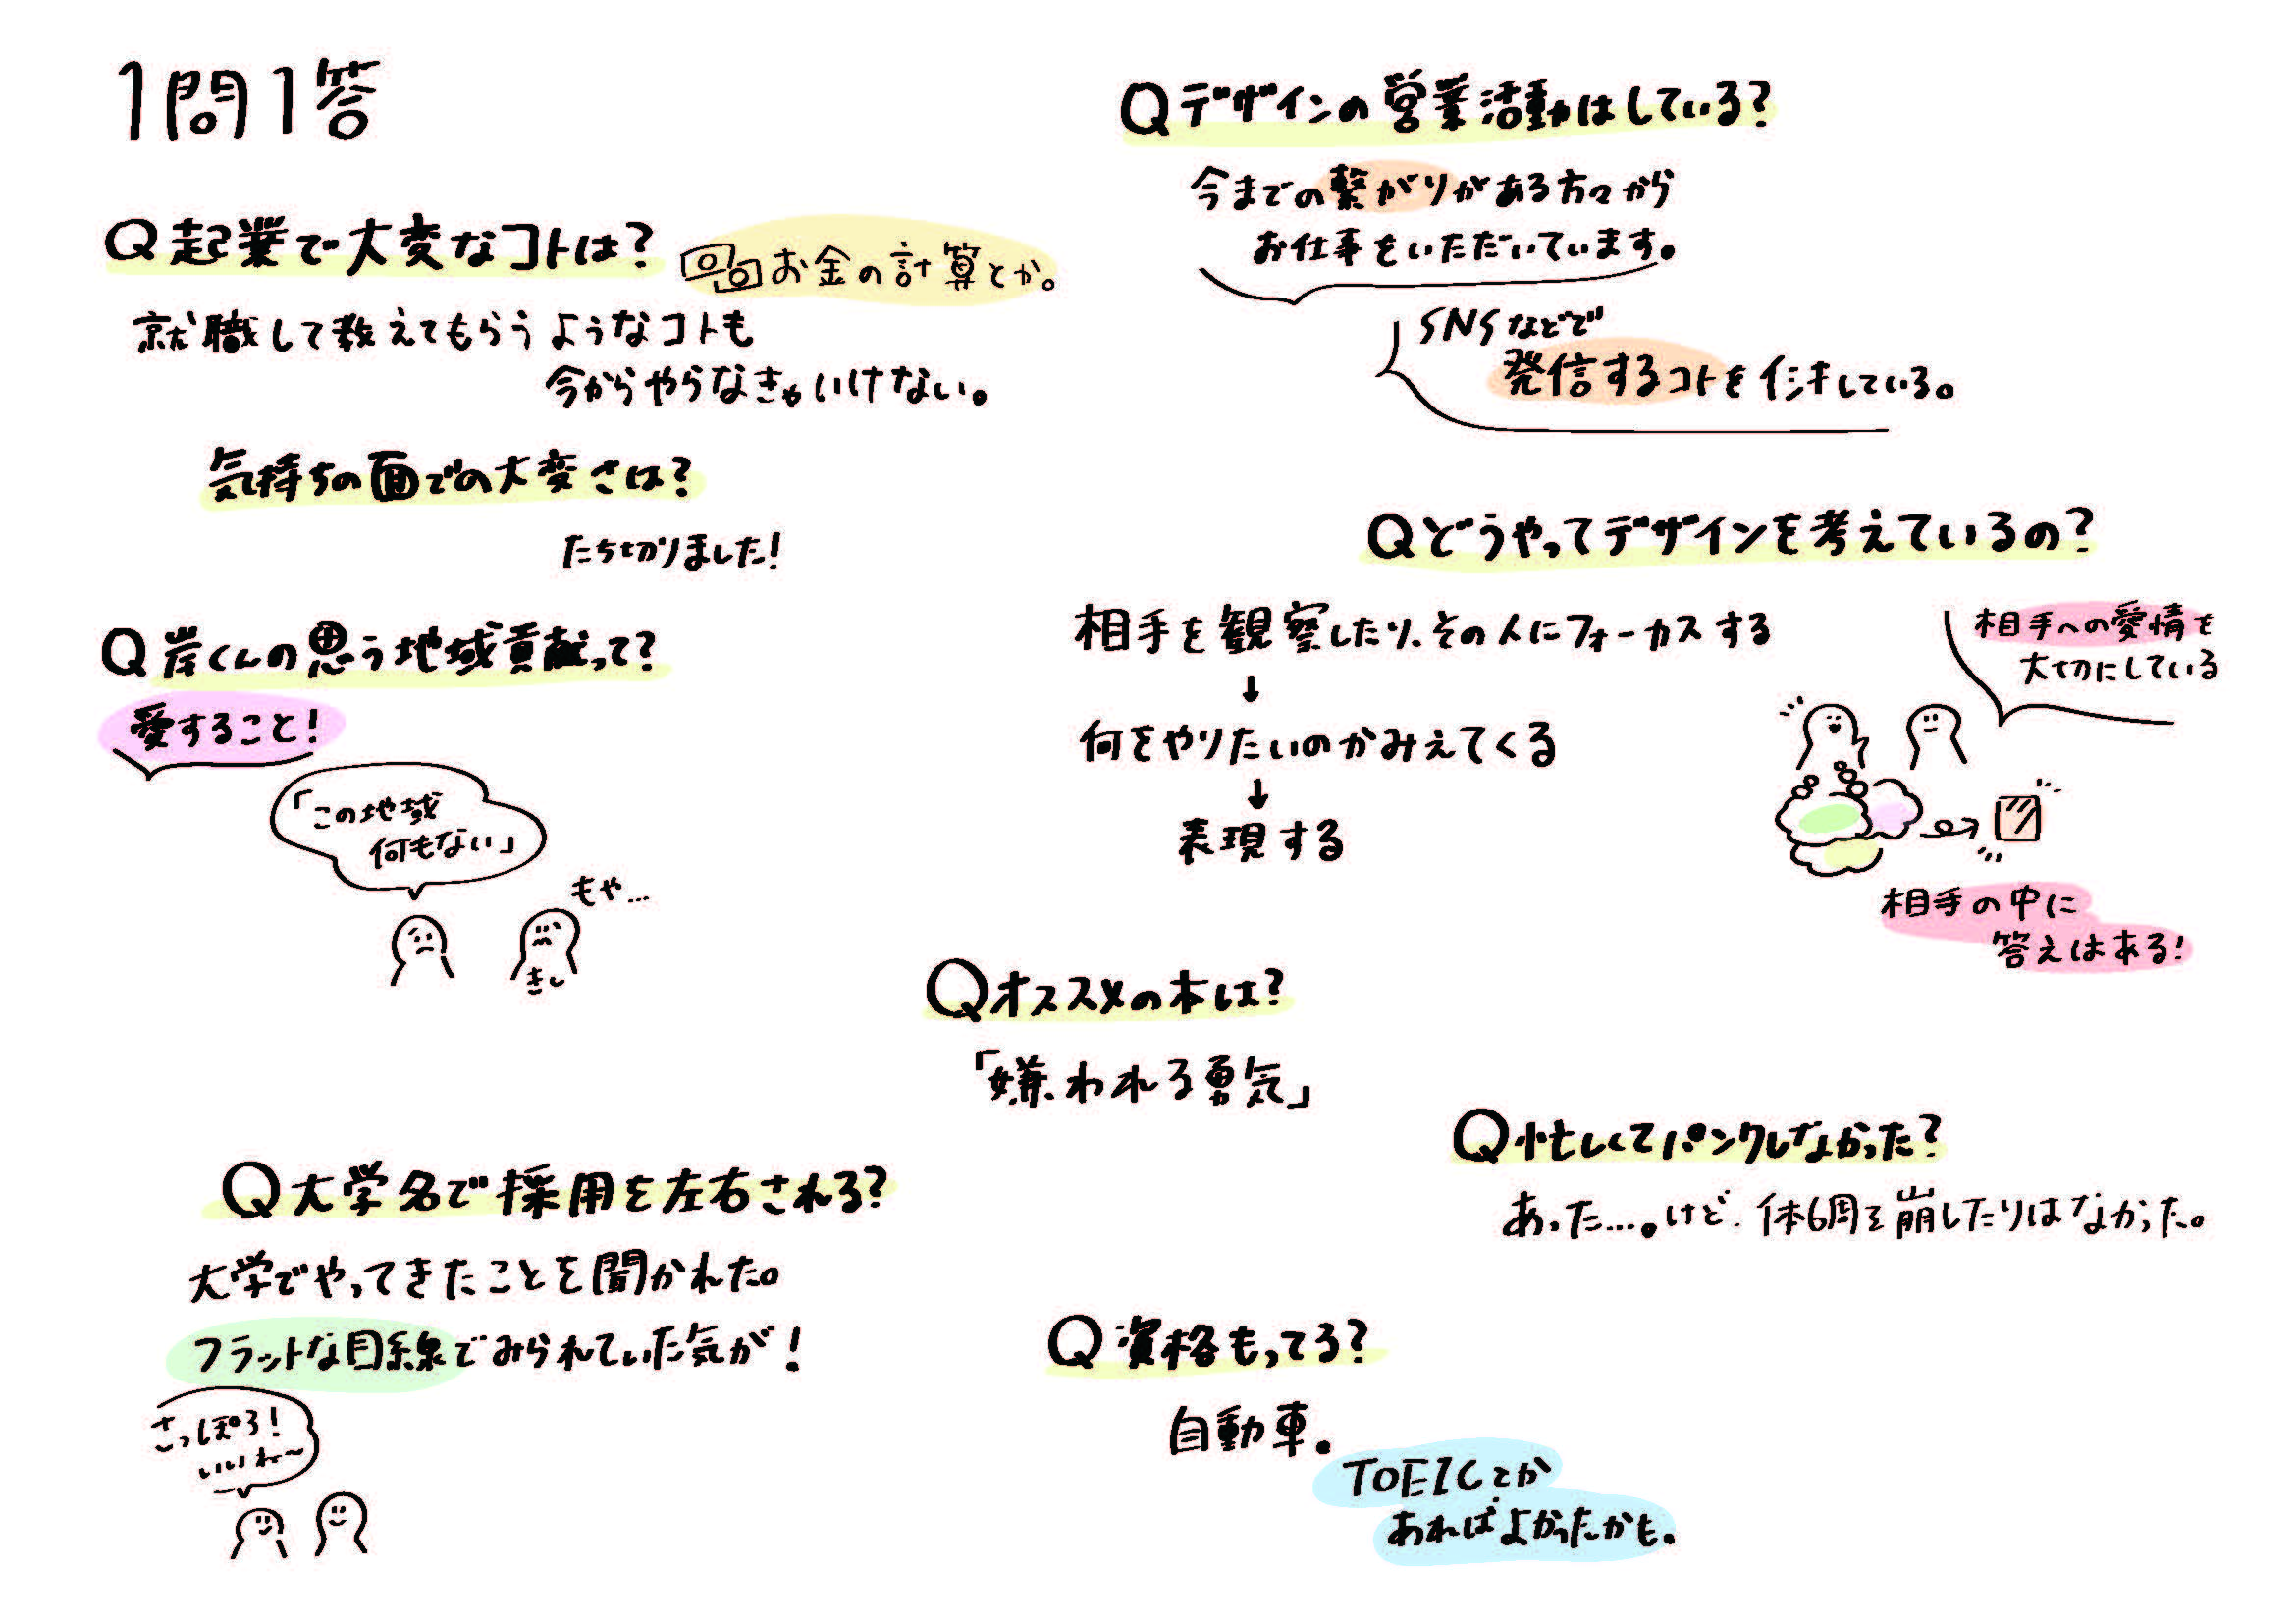 1問1答
Q起業で大変なコトは?
お金の計算とか。
就職して教えてもらうようなコトも
今からやらなきゃいけない。
気持ちの面での大変さは?
たち切りました!
Q岸くんの思う地域貢献って?
愛すること!
「この地域
何もない」
もや…
きし
Q大学名で採用を左右される?
大学でやってきたことを聞かれた。
フラットな目線でみられていた気が!
さっぽろ!
いいね〜
Qデザインの営業活動はしている?
今までの繋がりがある方々から
お仕事をいただいています。
SNSなどで
発信するコトを イシキしている。
Qどうやってデザインを考えているの?
相手を観察したり、その人にフォーカスする
↓
何をやりたいのかみえてくる
↓
表現する
相手への愛情を
大切にしている
相手の中に
答えはある!
Qオススメの本は?
「嫌われる勇気」
Q忙しくてパンクしなかった?
あった…。けど、体調を崩したりはなかった。
Q資格もってる?
自動車。
TOEICとか
あればよかったかも。